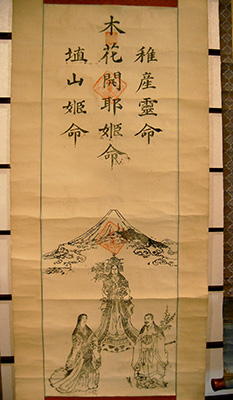 稚産靈命
木花開耶姫命
埴山姫命